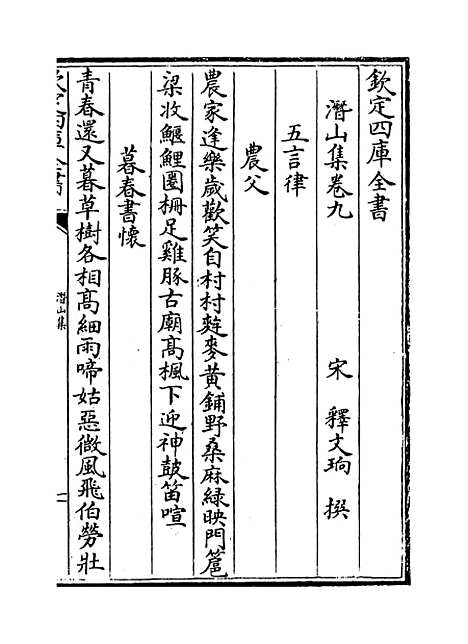 欽定四庫全書
潛山集卷九
宋 釋文珦 撰
五言律
農父
農家逢樂歲歡笑自村村麰麥黃鋪野桑麻緑映門扈
梁收鰋鯉圏柵足雞豚古廟髙楓下迎神鼓笛喧
暮春書懷
青春還又暮草樹各相髙細雨啼姑惡微風飛伯勞壯
潛山集
一